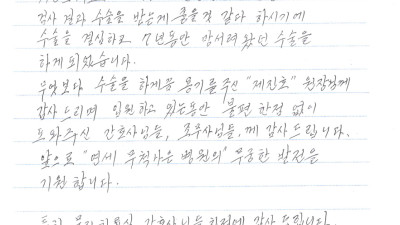 검사 결과 수술을 받는게 좋을것 같다 하시기에
수술을 결심하고 7년동안 망서려 왔던 수술을
하게 되었습니다.
무엇보다 수술을 하게끔 용기를 주신 "제진호" 원장님께
감사 드리며 입원하고 있는동안 불편 한점 없이
도와주신 간호사님들, 조무사님들,께 감사드립니다.
앞으로 "연세 무척나은 병원의" 무궁한 발전을
기원 합니다.
특히 물리치료실 간호사님들 친절에 감사 드립니다.